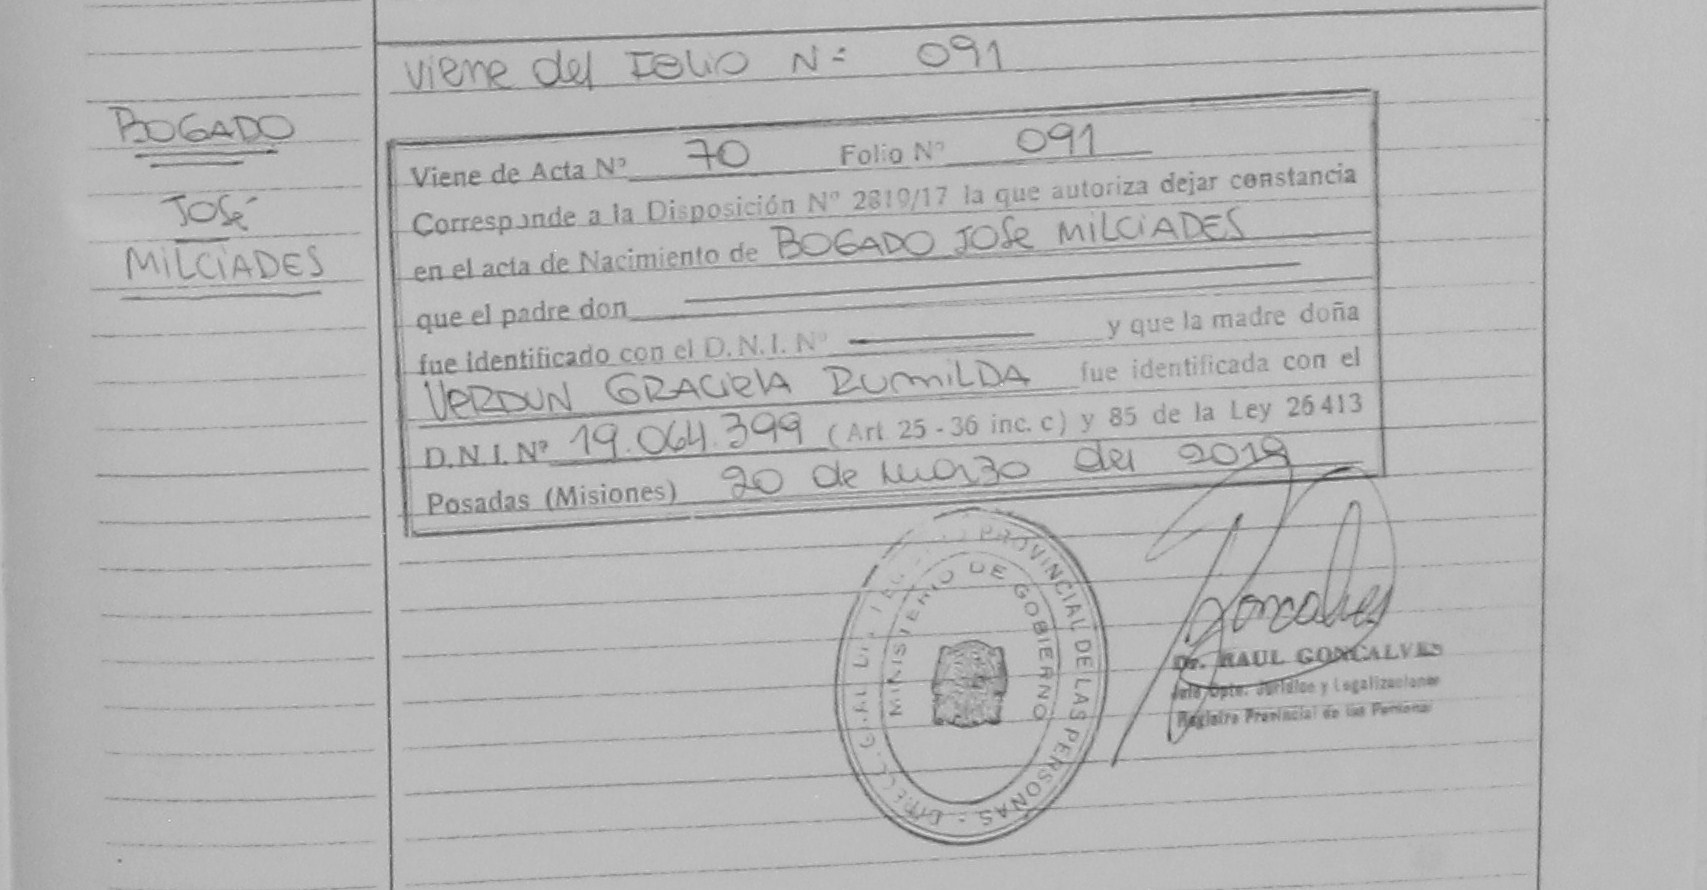 Viene del Folio N= 091
BOGADO
JOSÉ
MILCIADES
Viene de Acta Nº 70 Folio Nº 091
Corresponde a la Disposición Nº 2819/17 la que autoriza dejar constancia
en el acta de Nacimiento de BOGADO JOSE MILCIADES
que el padre don
fue identificado con el D.N.I. Nº y que la madre doña
VERDUN GRACIELA RUMILDA fue identificada con el
D.N.I. Nº 19.064.399 (Art 25 - 36 inc. c) y 85 de la Ley 26413
Posadas (Misiones) 20 de marzo del 2019
PROVINCIAL DE LAS PERSONAS
MINISTERIO DE GOBIERNO
Goncalves
Dr. RAUL GONCALVES
Jefe Dpto. Jurídico y Legalizaciones
Registro Provincial de las Personas